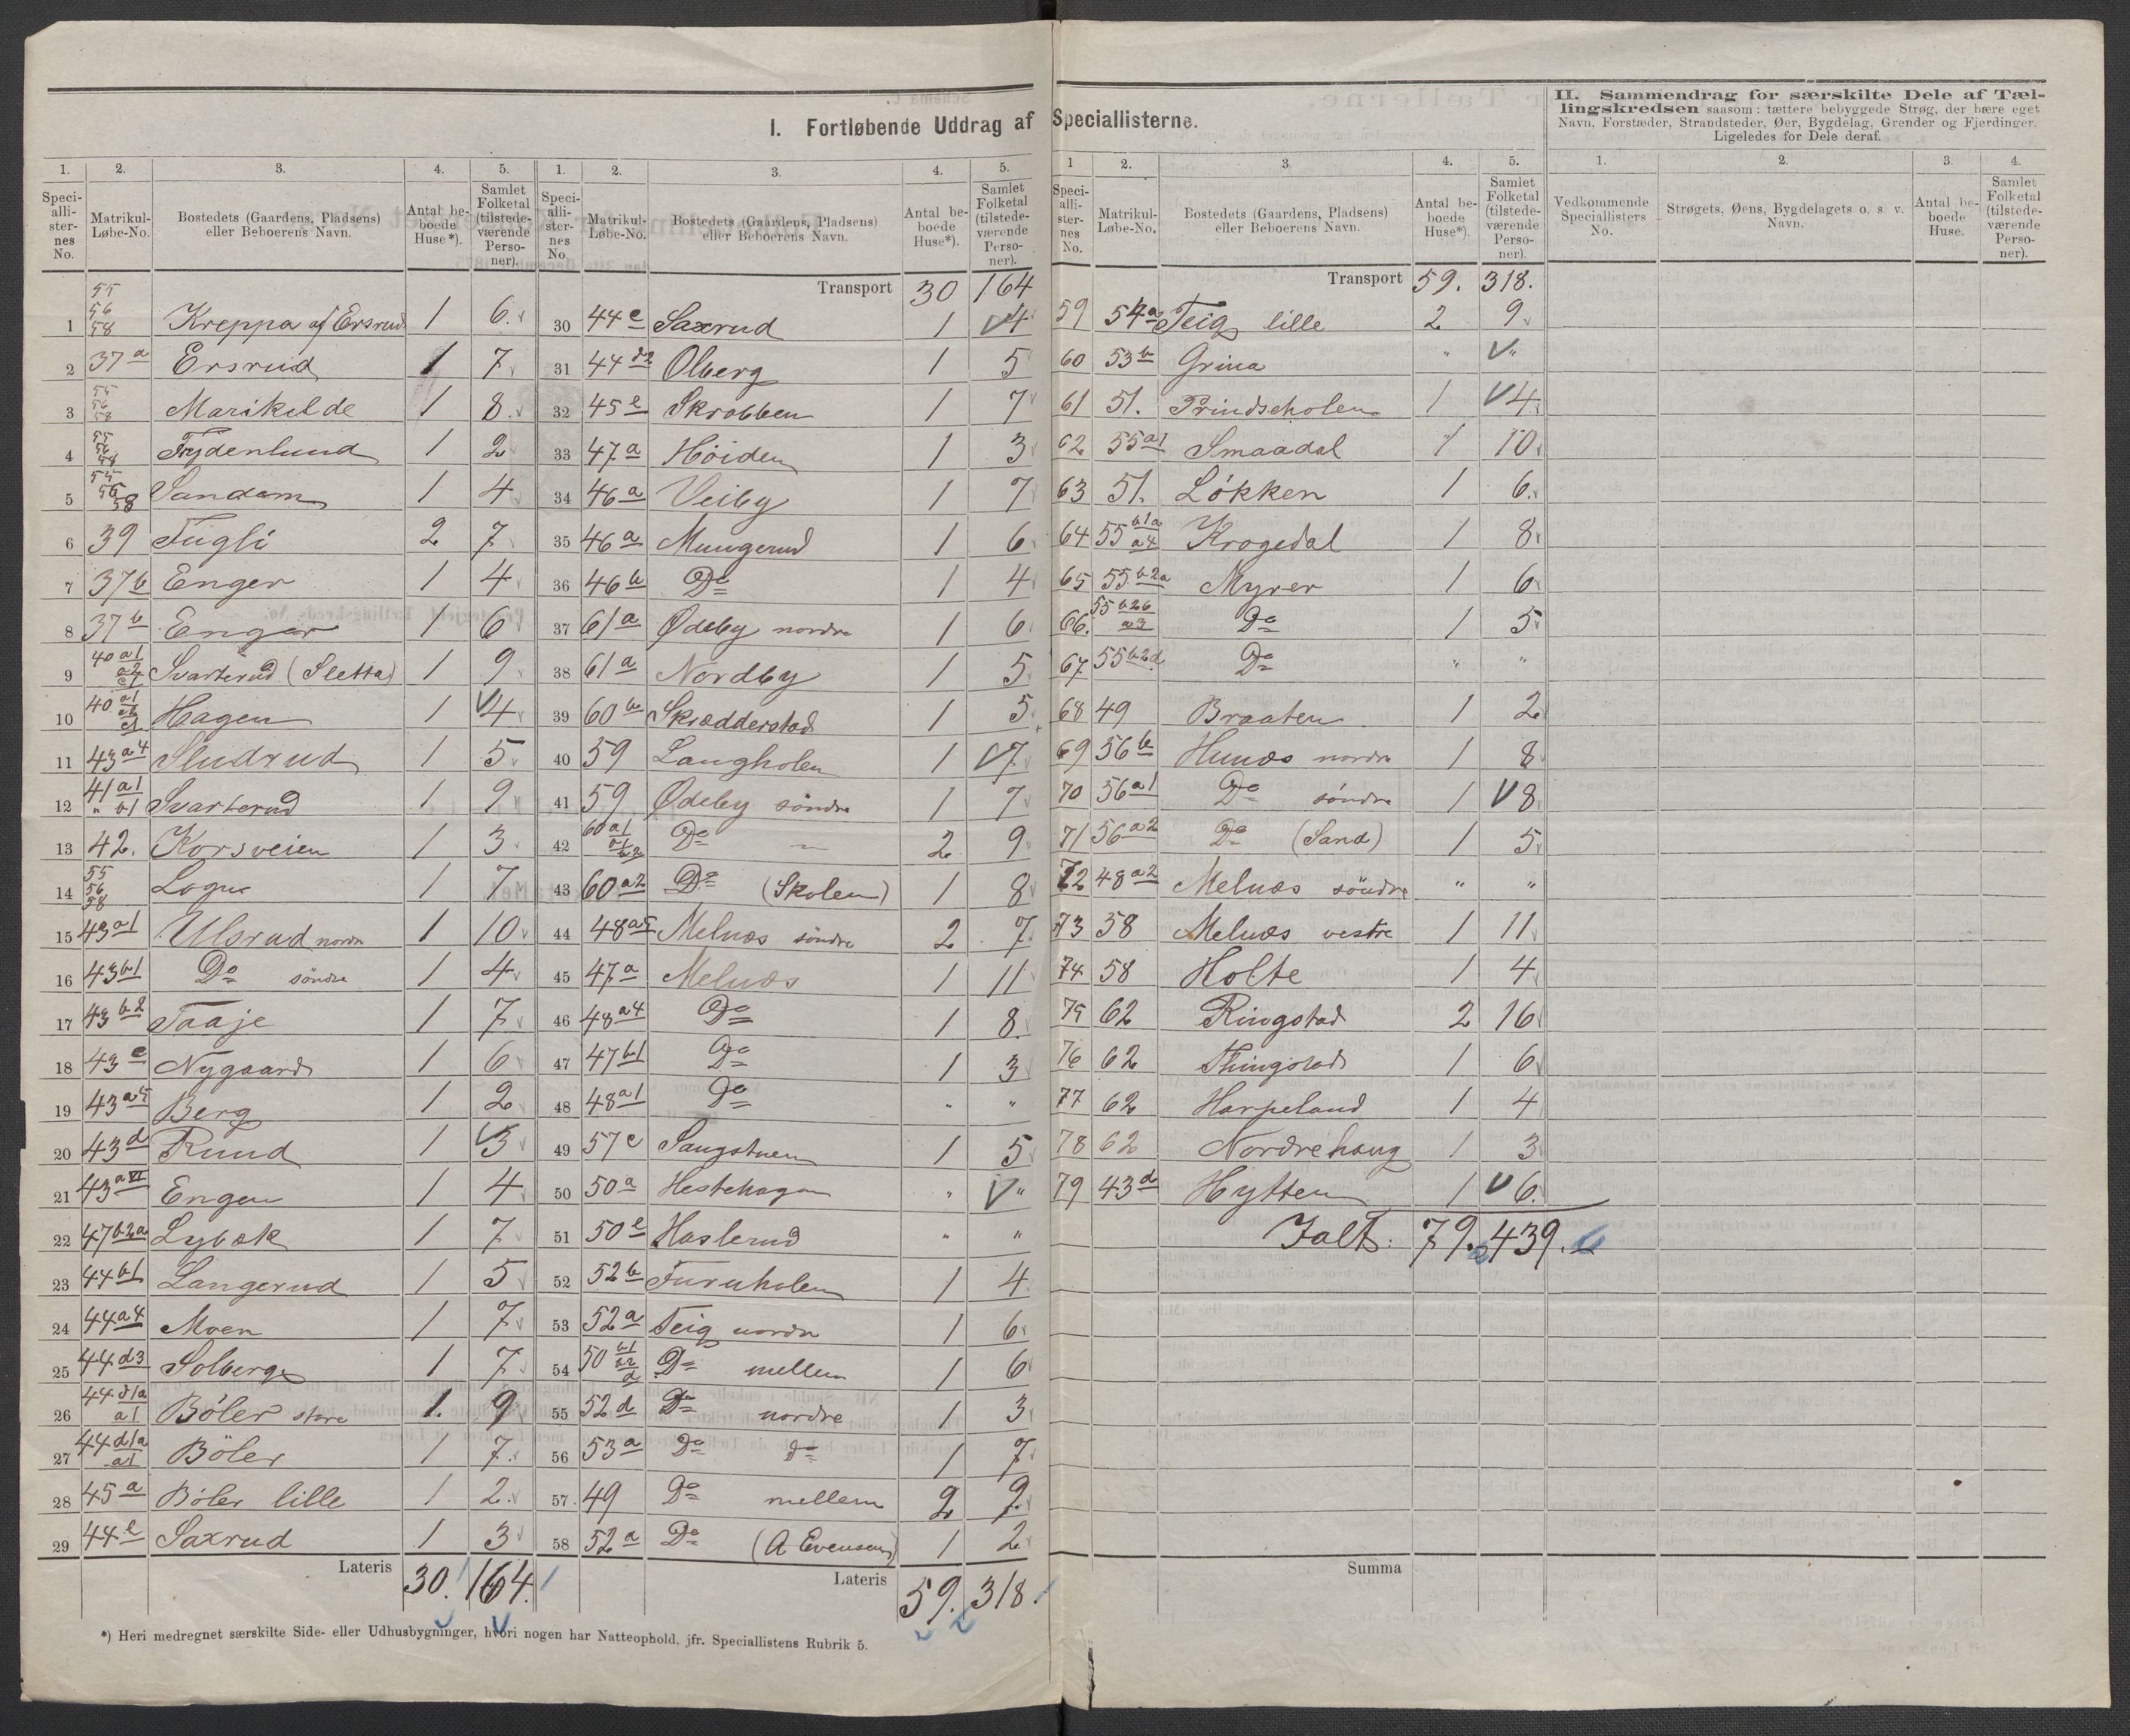 I. Fortløbende Uddrag af Speciallisterne.
II. Sammendrag for særskilte Dele af Tæl-
lingskredsen saasom: tættere bebyggede Strøg, der bære eget
Navn, Forstæder, Strandsteder, Øer, Bygdelag, Grender og Fjerdinger.
Ligeledes for Dele deraf.
1. 2. 3. 4. 5.
Speciallisternes No. Matrikul-Løbe-No. Bostedets (Gaardens, Pladsens) eller Beboerens Navn. Antal beboede Huse*). Samlet Folketal (tilstedeværende Personer).
1 55 56 58 Kreppa af Ersrud 1 6
2 37a Ersrud 1 7
3 55 56 58 Marikelde 1 8
4 55 56 58 Frydenlund 1 2
5 55 56 58 Sandem 1 4
6 39 Fugli 2 7
7 37b Enger 1 4
8 37b Enger 1 6
9 40 a1 Svarterud (Sletta) 1 9
10 40 a1 Hagen 1 4
11 43a4 Sludrud 1 5
12 41 a1 " b1 Svarterud 1 9
13 42. Korsveien 1 3
14 55 56 58 Logn 1 7
15 43a1 Ulsrud nordre 1 10
16 43b1 Do søndre 1 4
17 43b2 Taaje 1 7
18 43c Nygaard 1 6
19 43a5 Berg 1 2
20 43d Ruud 1 3
21 43aVI Engen 1 4
22 47b2a Lybæk 1 7
23 44b1 Langerud 1 5
24 44a4 Moen 1 7
25 44d3 Solberg 1 7
26 44 d1a a1 Böler store 1. 9
27 44 d1a a1 Böler 1 7
28 45a Böler lille 1 2
29 44e Saxrud 1 3
Lateris 30. 164.
1. 2. 3. 4. 5.
Speciallisternes No. Matrikul-Løbe-No. Bostedets (Gaardens, Pladsens) eller Beboerens Navn. Antal beboede Huse*). Samlet Folketal (tilstedeværende Personer).
Transport 30 164
30 44e Saxrud 1 4
31 44d2 Olberg 1 5
32 45e Skrobben 1 7
33 47a Höiden 1 3
34 46a Veiby 1 7
35 46a Mungerud 1 6
36 46b Do 1 4
37 61a Ødeby nordre 1 6
38 61a Nordby 1 5
39 60b Skrædderstad 1 5
40 59 Langholen 1 7
41 59 Ødeby söndre 1 7
42 60 a1 b1 b2 Do 2 9
43 60a2 Do (Skolen) 1 8
44 48a5 Melnæs söndre 2 7
45 47a Melnæs 1 11
46 48a4 Do 1 8
47 47b1 Do 1 3
48 48a1 Do " "
49 57c Sangstuen 1 5
50 50a Hestehagen " "
51 50e Haslerud " "
52 52b Furuholen 1 4
53 52a Teig nordre 1 6
54 50 b1 Do mellem 1 6
55 52d Do nordre 1 3
56 53a Do do 1 7
57 49 Do mellem 2 9
58 52a Do (A Evensen) 1 2
Lateris 59. 318.
1 2. 3. 4. 5.
Speciallisternes No. Matrikul-Løbe-No. Bostedets (Gaardens, Pladsens) eller Beboerens Navn. Antal beboede Huse*). Samlet Folketal (tilstedeværende Personer).
Transport 59. 318.
59 54a Teig lille 2 9
60 53b Grina " "
61 51. Prindseholen 1 4
62 55a1 Smaadal 1 10
63 51. Løkken 1 6
64 55 b1a a4 Krogedal 1 8
65 55 b2a Myrer 1 6
66. 55 b2b a3 Do 1 5
67 55b2d Do " "
68 49 Braaten 1 2
69 56b Hunæs nordre 1 8
70 56a1 Do söndre 1 8
71 56a2 Do (Sand) 1 5
72 48a2 Melnæs söndre " "
73 58 Melnæs vestre 1 11
74 58 Holte 1 4
75 62 Ringstad 2 16
76 62 Thingstad 1 6
77 62 Harpeland 1 4
78 62 Nordrehaug 1 3
79 43d Hytten 1 6
Ialt: 79. 439.
Summa
1. 2. 3. 4.
Vedkommende Speciallisters No. Strøgets, Øens, Bygdelagets o. s. v. Navn. Antal beboede Huse. Samlet Folketal (tilstedeværende Personer).
*) Heri medregnet særskilte Side- eller Udhusbygninger, hvori nogen har Natteophold, jfr. Speciallistens Rubrik 5.